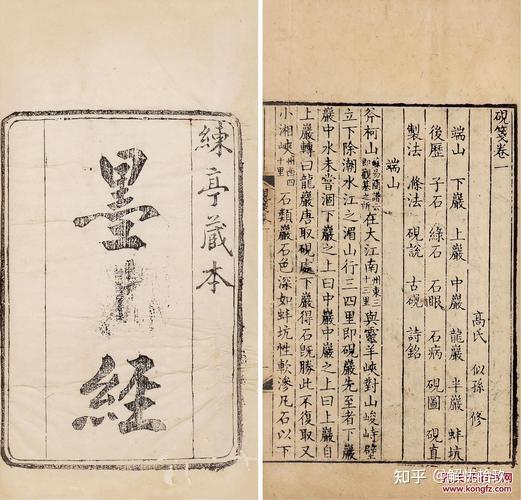 練亭藏本
墨經
硯箋卷一
高氏 似孫 修
端山 下巖 上巖 中巖 龍巖 半巖 蚌坑
後歷 子石 綠石 石眼 石病 硯圖 硯直
製法 滌法 硯說 古硯 詩銘
端山
斧柯山蘇易簡譜云即觀棊之所在大江南州東三十三里與靈羊峽對山峻峙壁
立下除潮水江之湄山行三四里即硯巖先至者下巖
巖中水未嘗涸下巖之上曰中巖中巖之上曰上巖自
上巖轉曰龍巖唐取硯處下巖得石旣勝此不復取又
小湘峽州西四十里石類巖石色深如蚌坑性軟滲凡石以下
知乎 @解忧拾玖
kongfz.com